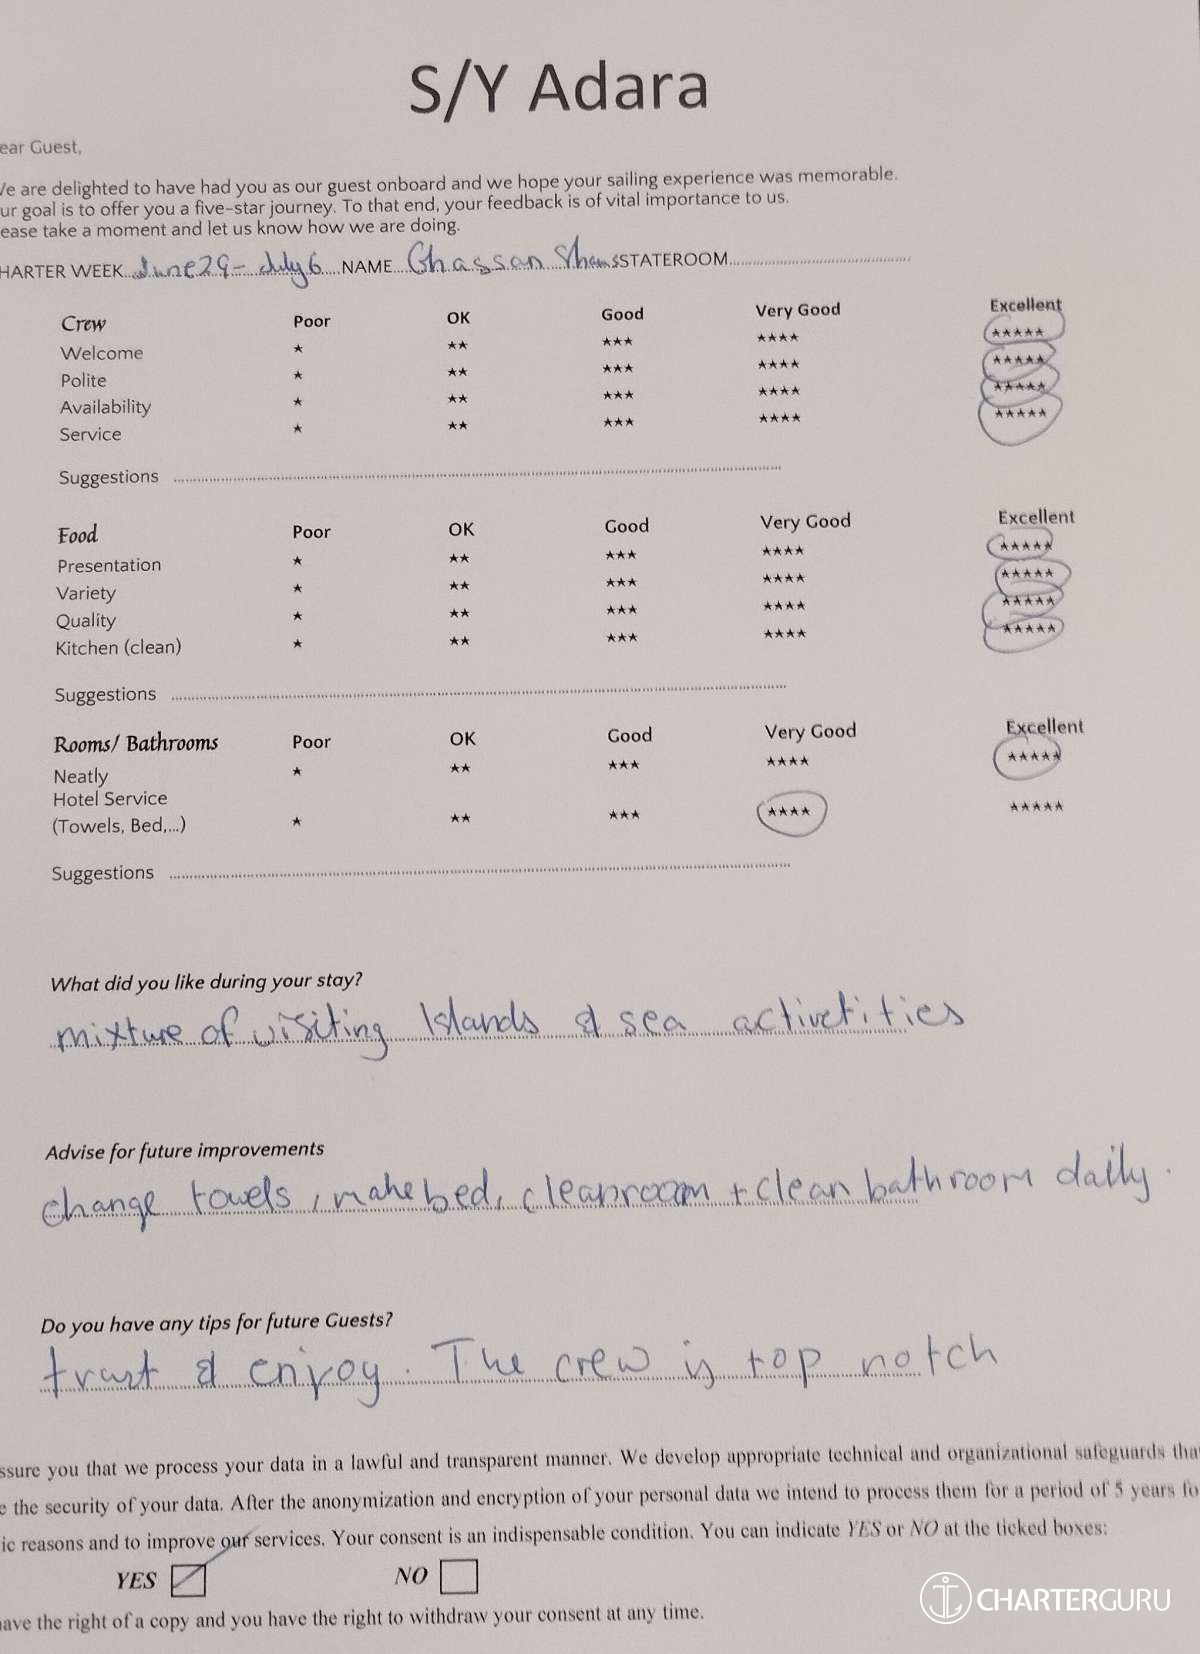 S/Y Adara
ear Guest,
We are delighted to have had you as our guest onboard and we hope your sailing experience was memorable.
ur goal is to offer you a five-star journey. To that end, your feedback is of vital importance to us.
ease take a moment and let us know how we are doing.
HARTER WEEK June 29 - July 6 NAME Ghassan Shams STATEROOM
Crew Poor OK Good Very Good Excellent
Welcome ★ ★★ ★★★ ★★★★ ★★★★★
Polite ★ ★★ ★★★ ★★★★ ★★★★★
Availability ★ ★★ ★★★ ★★★★ ★★★★★
Service ★ ★★ ★★★ ★★★★ ★★★★★
Suggestions
Food Poor OK Good Very Good Excellent
Presentation ★ ★★ ★★★ ★★★★ ★★★★★
Variety ★ ★★ ★★★ ★★★★ ★★★★★
Quality ★ ★★ ★★★ ★★★★ ★★★★★
Kitchen (clean) ★ ★★ ★★★ ★★★★ ★★★★★
Suggestions
Rooms/ Bathrooms Poor OK Good Very Good Excellent
Neatly ★ ★★ ★★★ ★★★★ ★★★★★
Hotel Service
(Towels, Bed,...) ★ ★★ ★★★ ★★★★ ★★★★★
Suggestions
What did you like during your stay?
mixture of visiting Islands & sea activetities
Advise for future improvements
change towels, make bed, clean room + clean bathroom daily.
Do you have any tips for future Guests?
trust & enjoy. The crew is top notch
ssure you that we process your data in a lawful and transparent manner. We develop appropriate technical and organizational safeguards tha
e the security of your data. After the anonymization and encryption of your personal data we intend to process them for a period of 5 years fo
ic reasons and to improve our services. Your consent is an indispensable condition. You can indicate YES or NO at the ticked boxes:
YES NO
ave the right of a copy and you have the right to withdraw your consent at any time.
CHARTERGURU